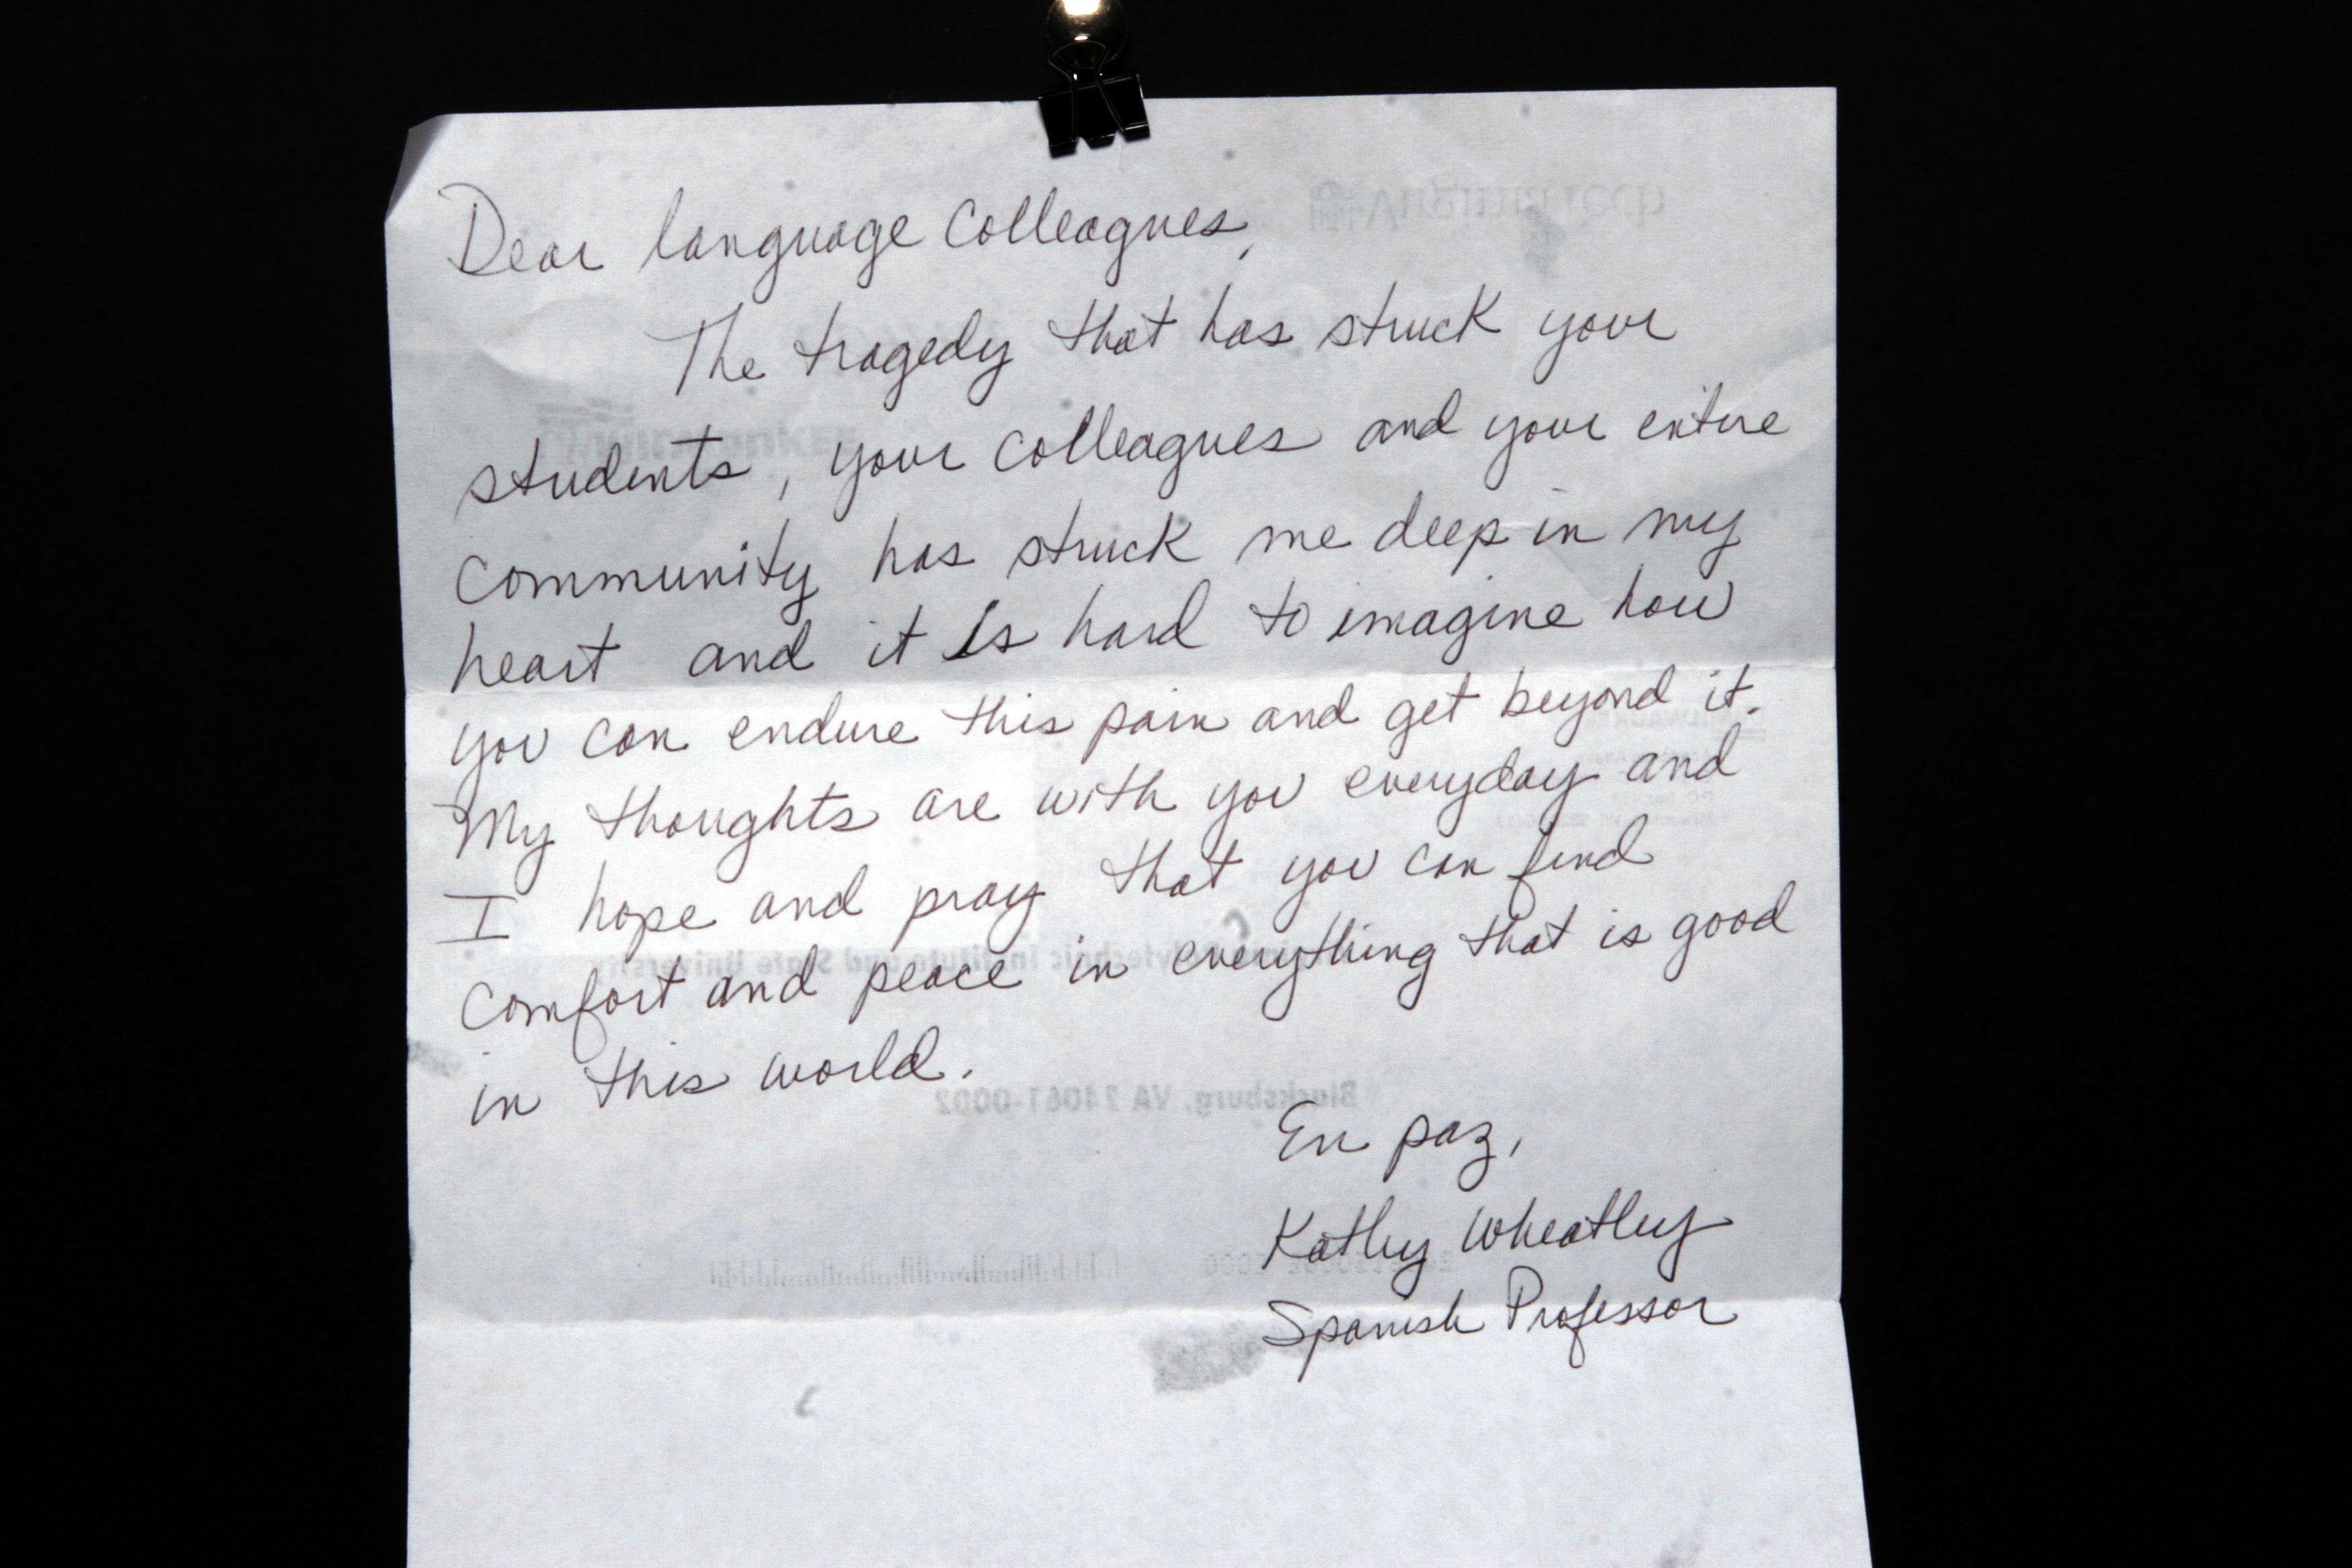 Dear language colleagues,
The tragedy that has struck your
students, your colleagues and your entire
community has struck me deep in my
heart and it is hard to imagine how
you can endure this pain and get beyond it.
My thoughts are with you everyday and
I hope and pray that you can find
comfort and peace in everything that is good
in this world.
En paz,
Kathy Wheatley
Spanish Professor
Virginia Tech
Blacksburg, VA 24061-0002